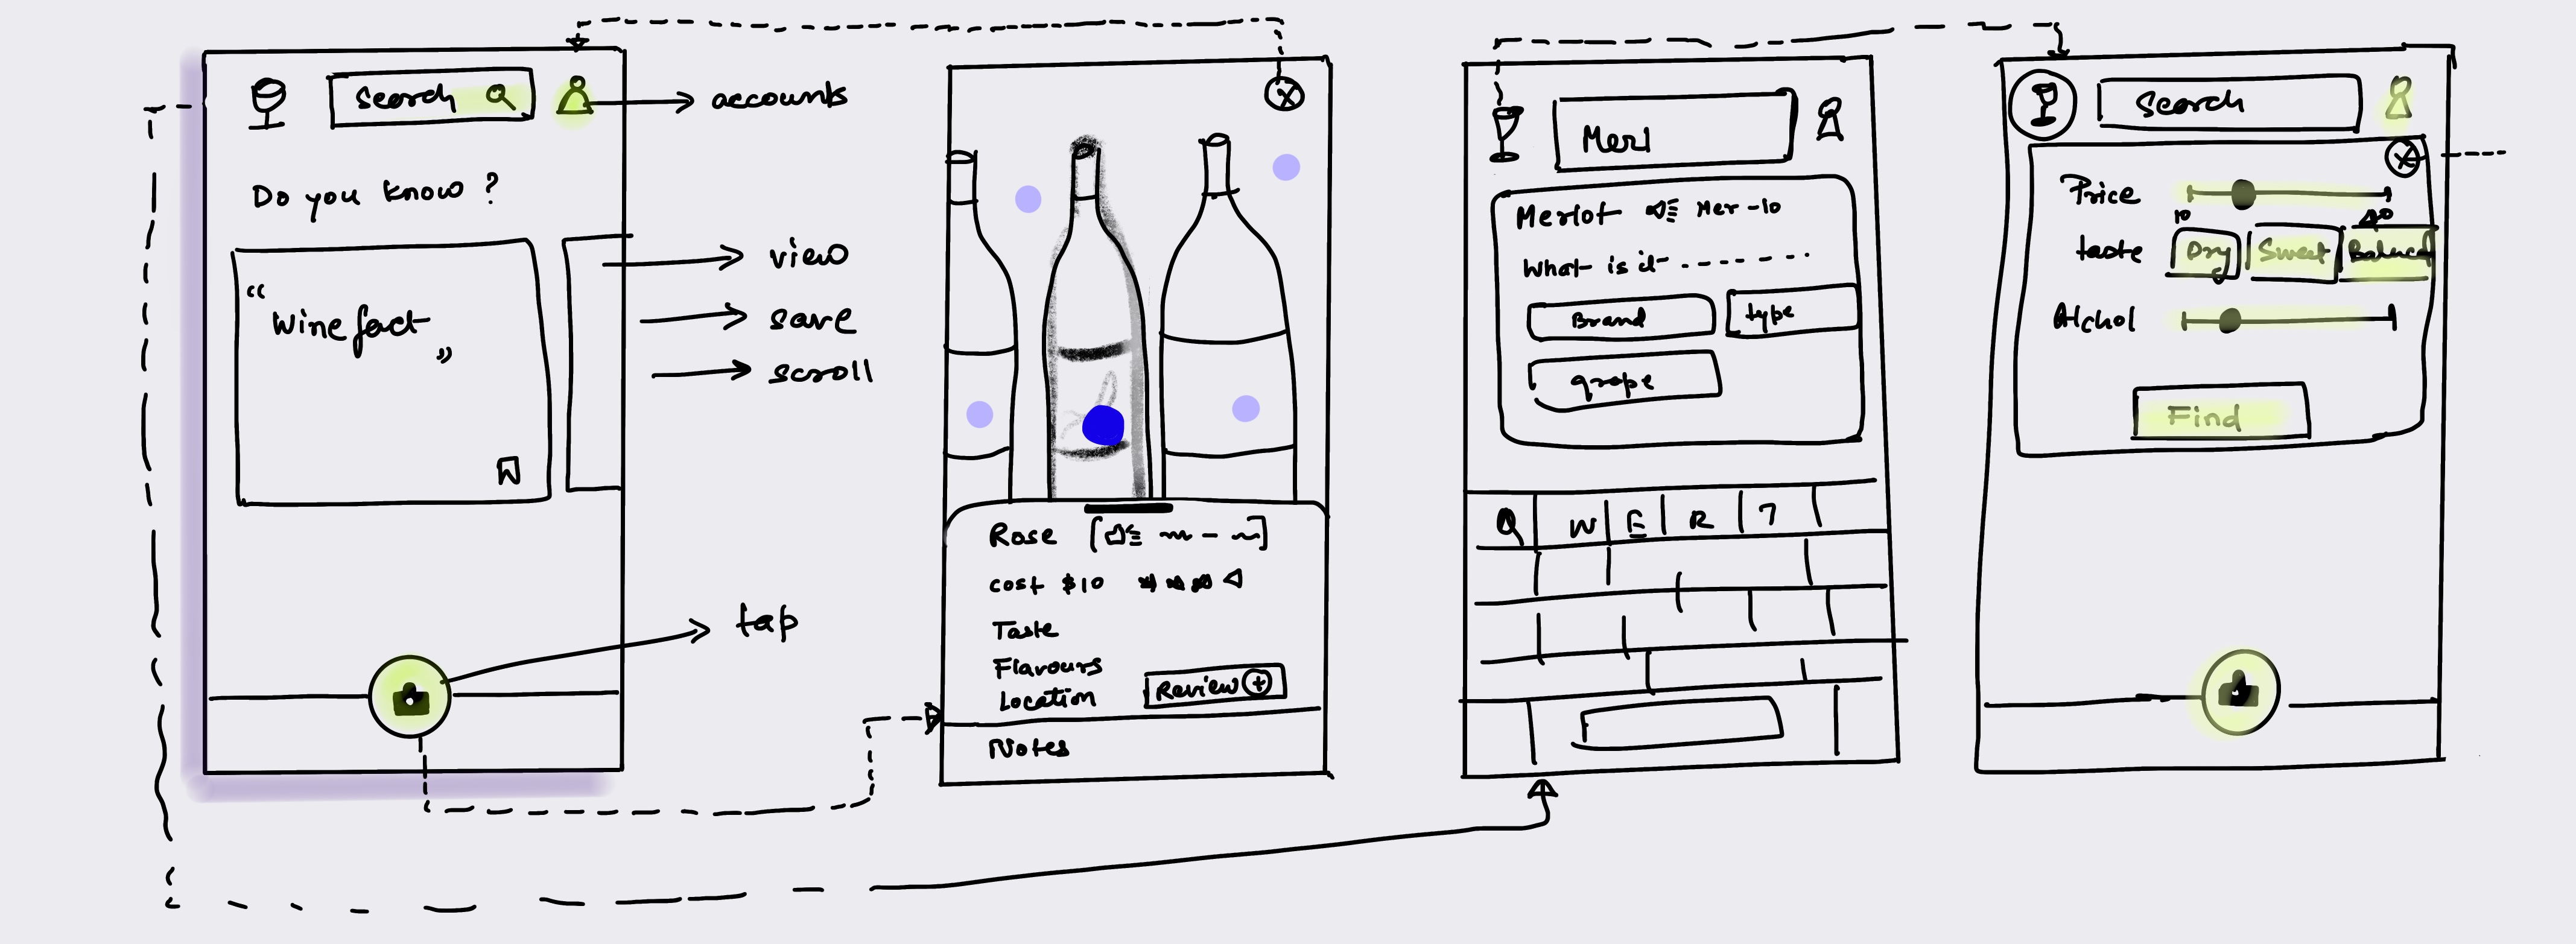 Search
accounts
Do you know ?
“
Wine fact
”
view
save
scroll
tap
X
Rose
cost $10
Taste
Flavours
Location
Review +
Notes
Merl
Merlot Mer - lo
What is it - - - - - - -
Brand
type
grape
Q W E R T
Search
X
Price
10 40
taste Dry Sweet Balanced
Alchol
Find